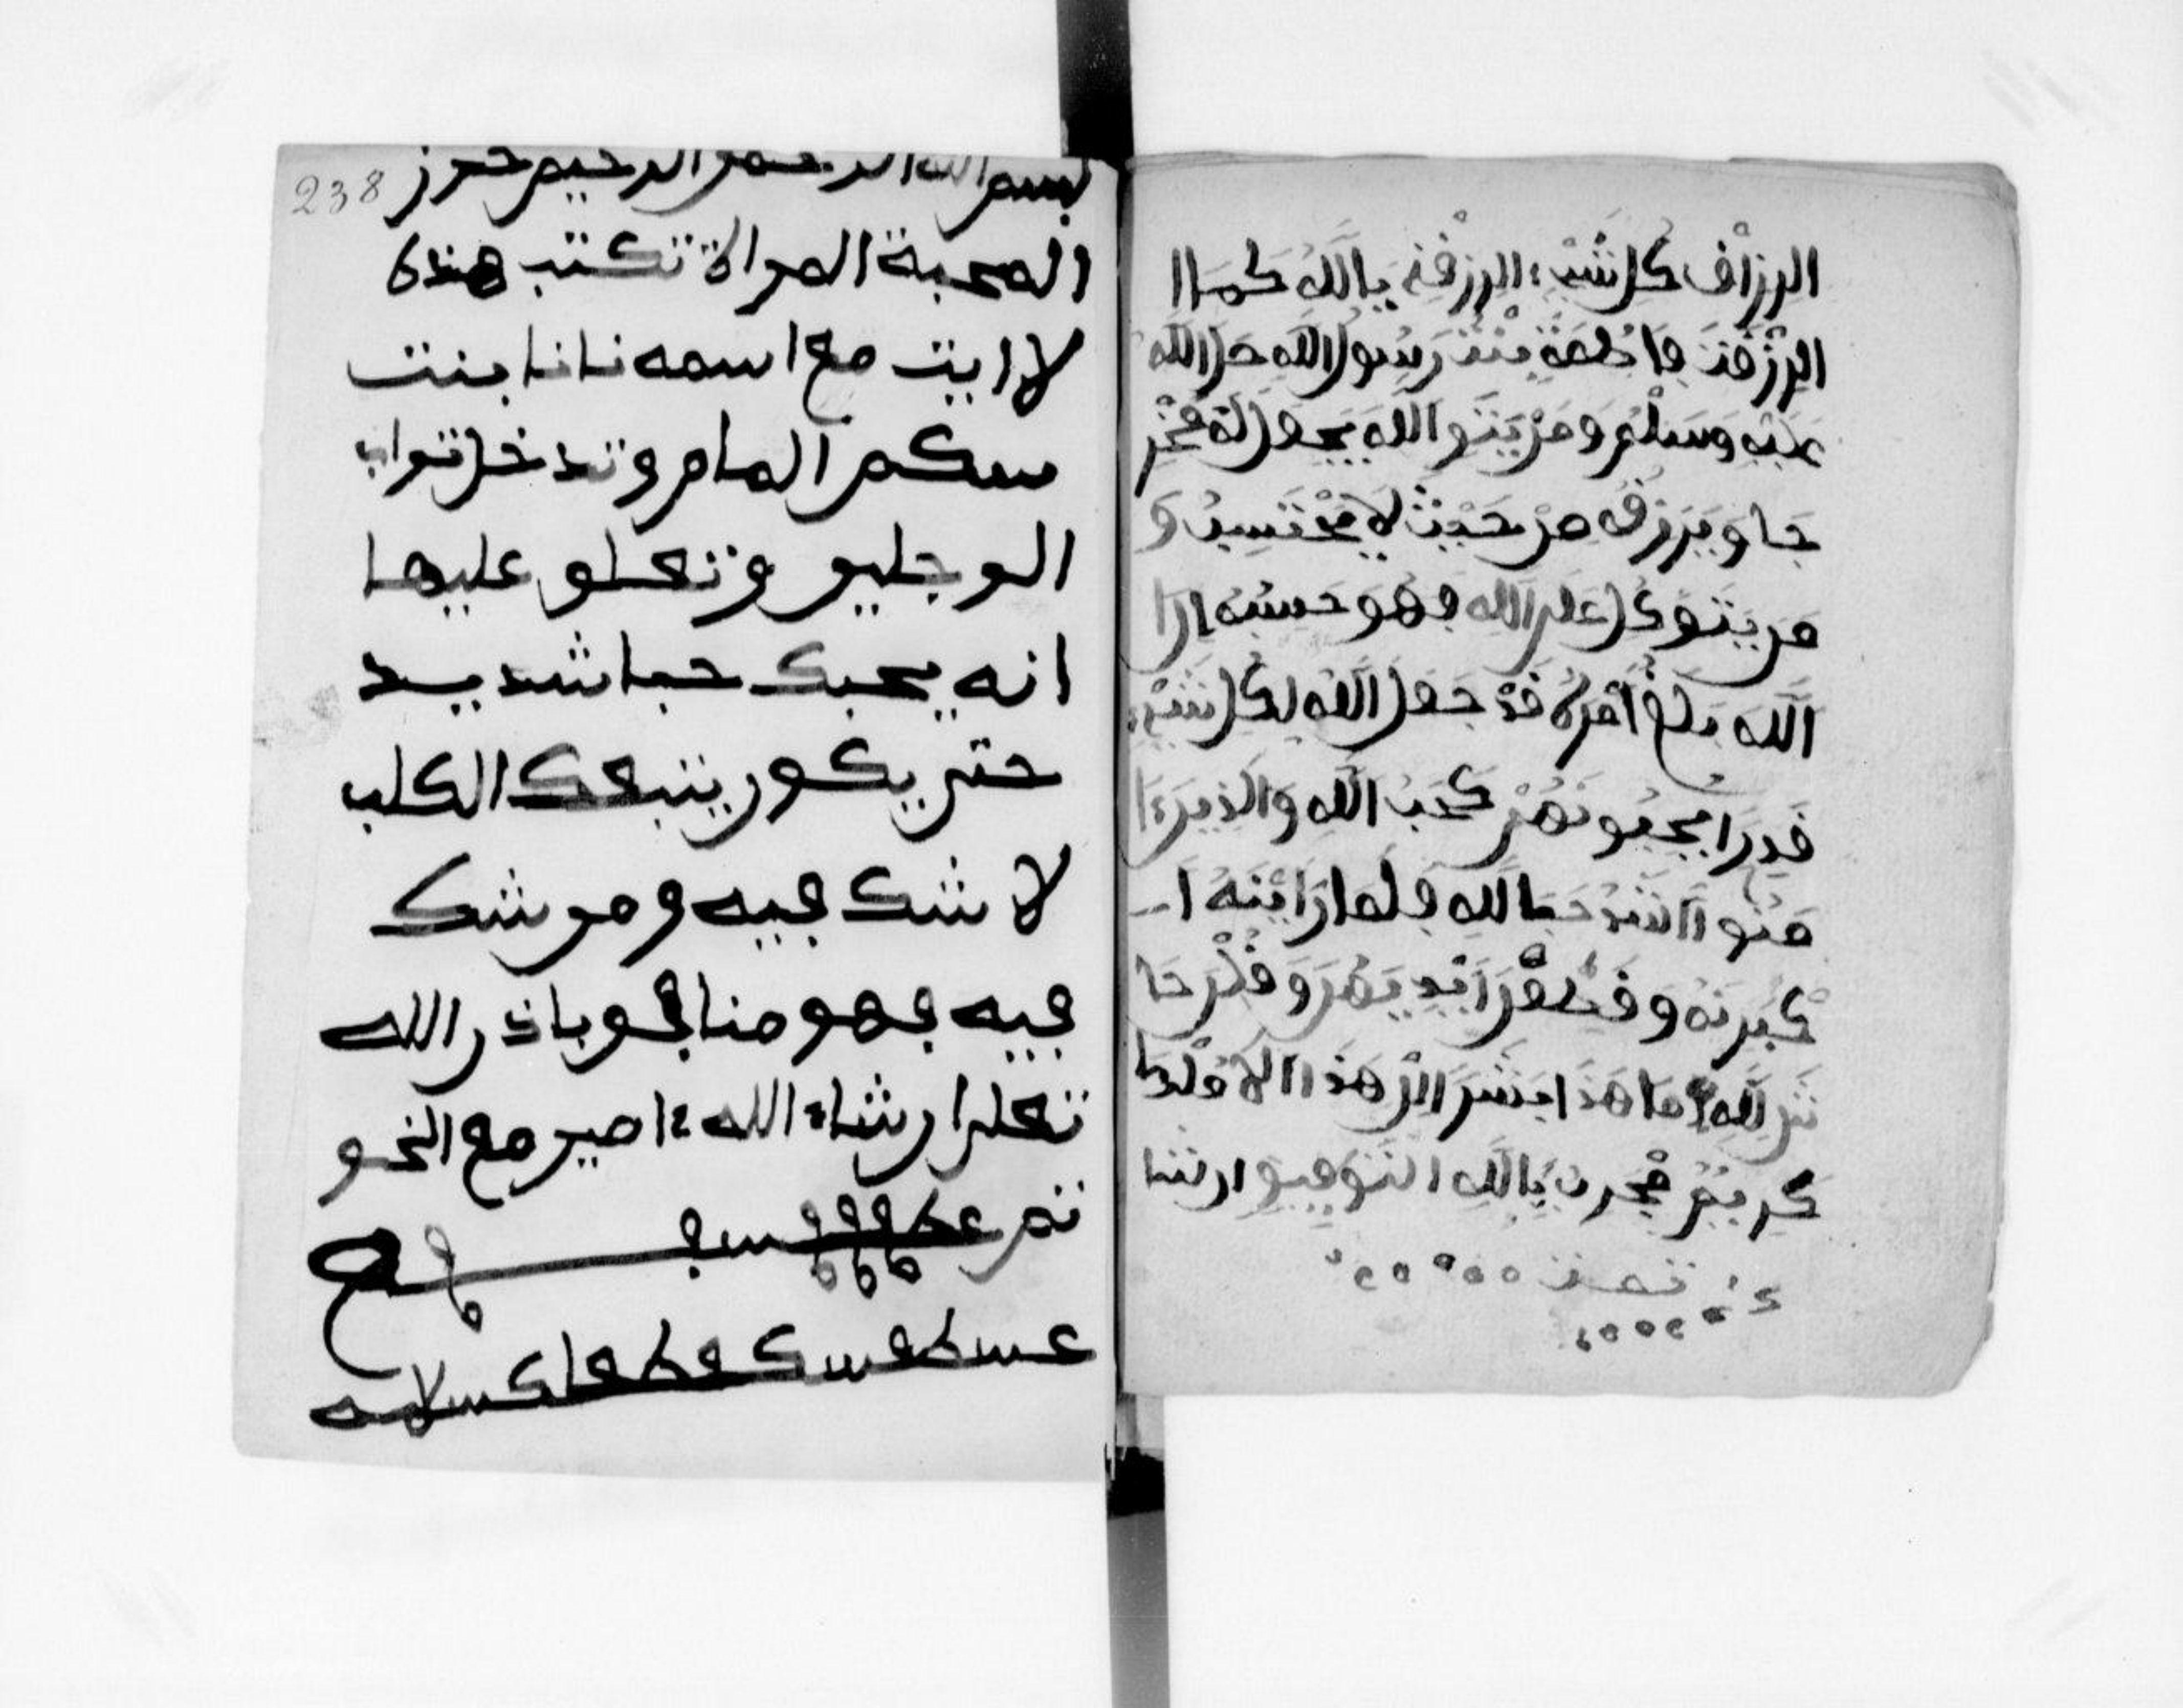 الرزاق كل شيء الرزقني يا الله كما ا
الرزقت فاطمة بنت رسول الله صل الله
عليه وسلم ومن يتو الله يجعل له مخر
جا ويرزقه من حيث لا يحتسب و
من يتوكل على الله فهو حسبه ان ا
الله بلغ امره قد جعل الله لكل شيء
قدرا يحبونهم كحب الله والذين ءا
منوا اشد حبا لله فلما راينه ا
كبرنه وقطعن ايديهن وقلن حا
ش لله ما هذا بشرا ان هذا الا ملك
كريم مجرب بالله التوفيق ان شا
تمت
238
بسم الله الرحمن الرحيم حرز
المحبة المراة تكتب هذه
الايت مع اسمه نانا بنت
سكم المام وتدخل تراب
الو جليو وتعلو عليها
انه يحبك حبا شديد
حتى يكون يتبعك الكلب
لا شك فيه ومن شك
فيه فهو منافق باذن الله
تعلى ان شاء الله ءامين مع
تم